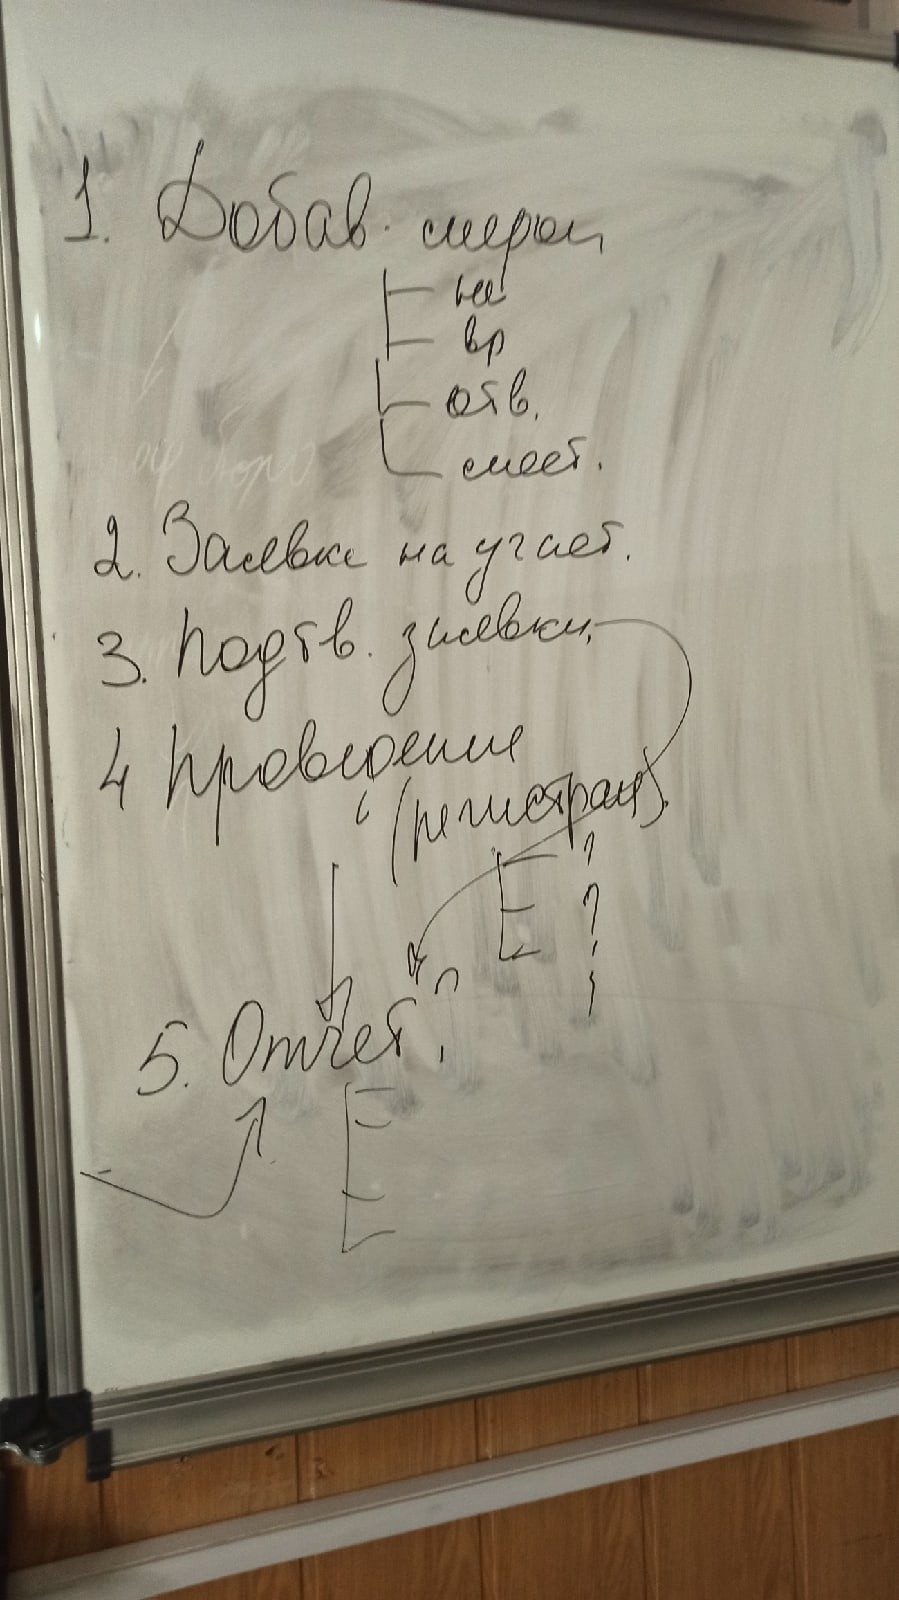 1. Добав. мероп
вр
отв.
мест.
2. Заявки на участ.
3. Подтв. заявки
4 Проведение
(регистрац).
?
?
5. Отчет?